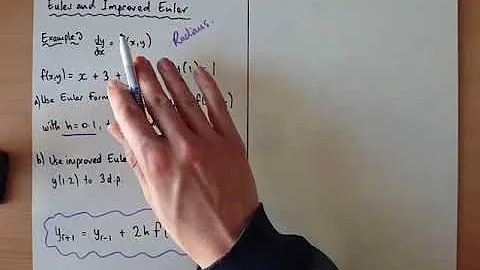 Eulers and Improved Euler
Example 1) dy/dx = f(x,y)
Radians.
f(x,y) = x + 3 + (1) = 1
a) Use Euler Form
with h = 0.1,
b) Use improved Eule
y(1.2) to 3 d.p.
yr+1 = yr-1 + 2h f(